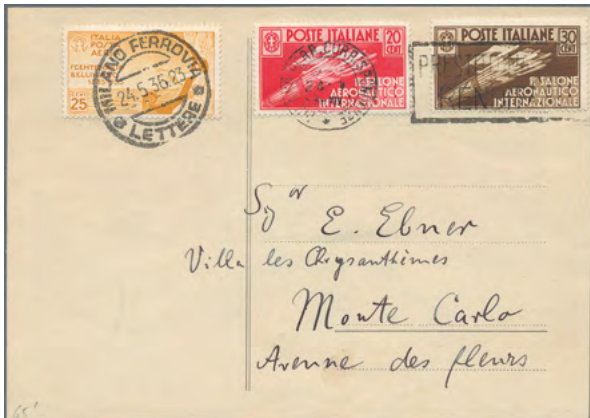 ITALIA
POSTA
AEREA
CENTEN
BELLINI
25
MILANO FERROVIA
24.5.36.23
LETTERE
POSTE ITALIANE
20
CENT
1° SALONE
AERONAUTICO
INTERNAZIONALE
POSTE ITALIANE
30
CENT
1° SALONE
AERONAUTICO
INTERNAZIONALE
Sigor
E. Ebner
Villa les Chrysanthèmes
Monte Carlo
Avenue des fleurs
65'